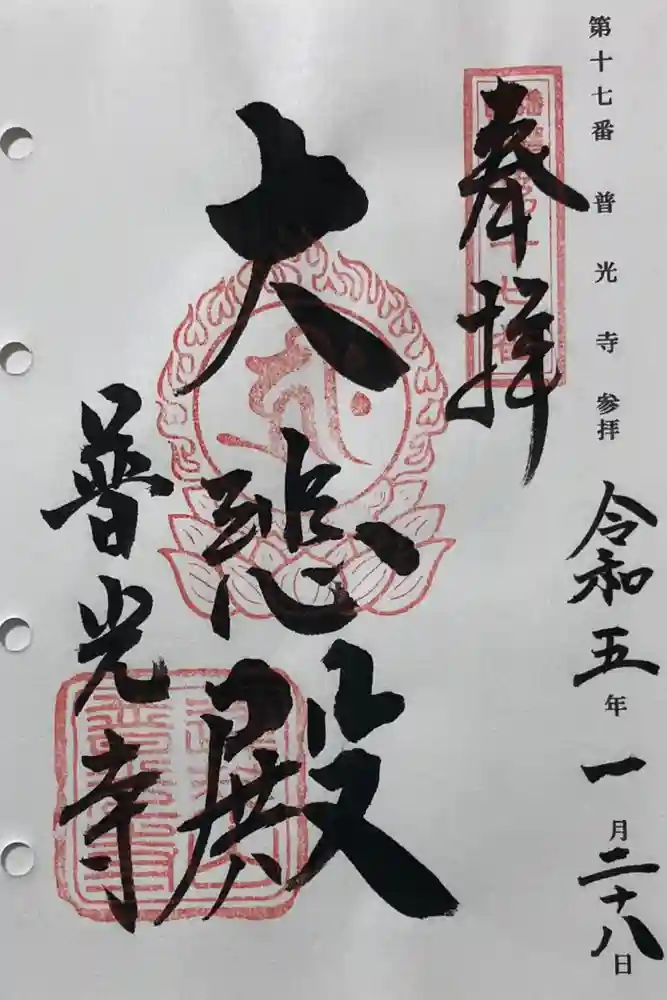 第十七番 普光寺 参拝
令和五年一月二十八日
奉拝
大悲殿
普光寺